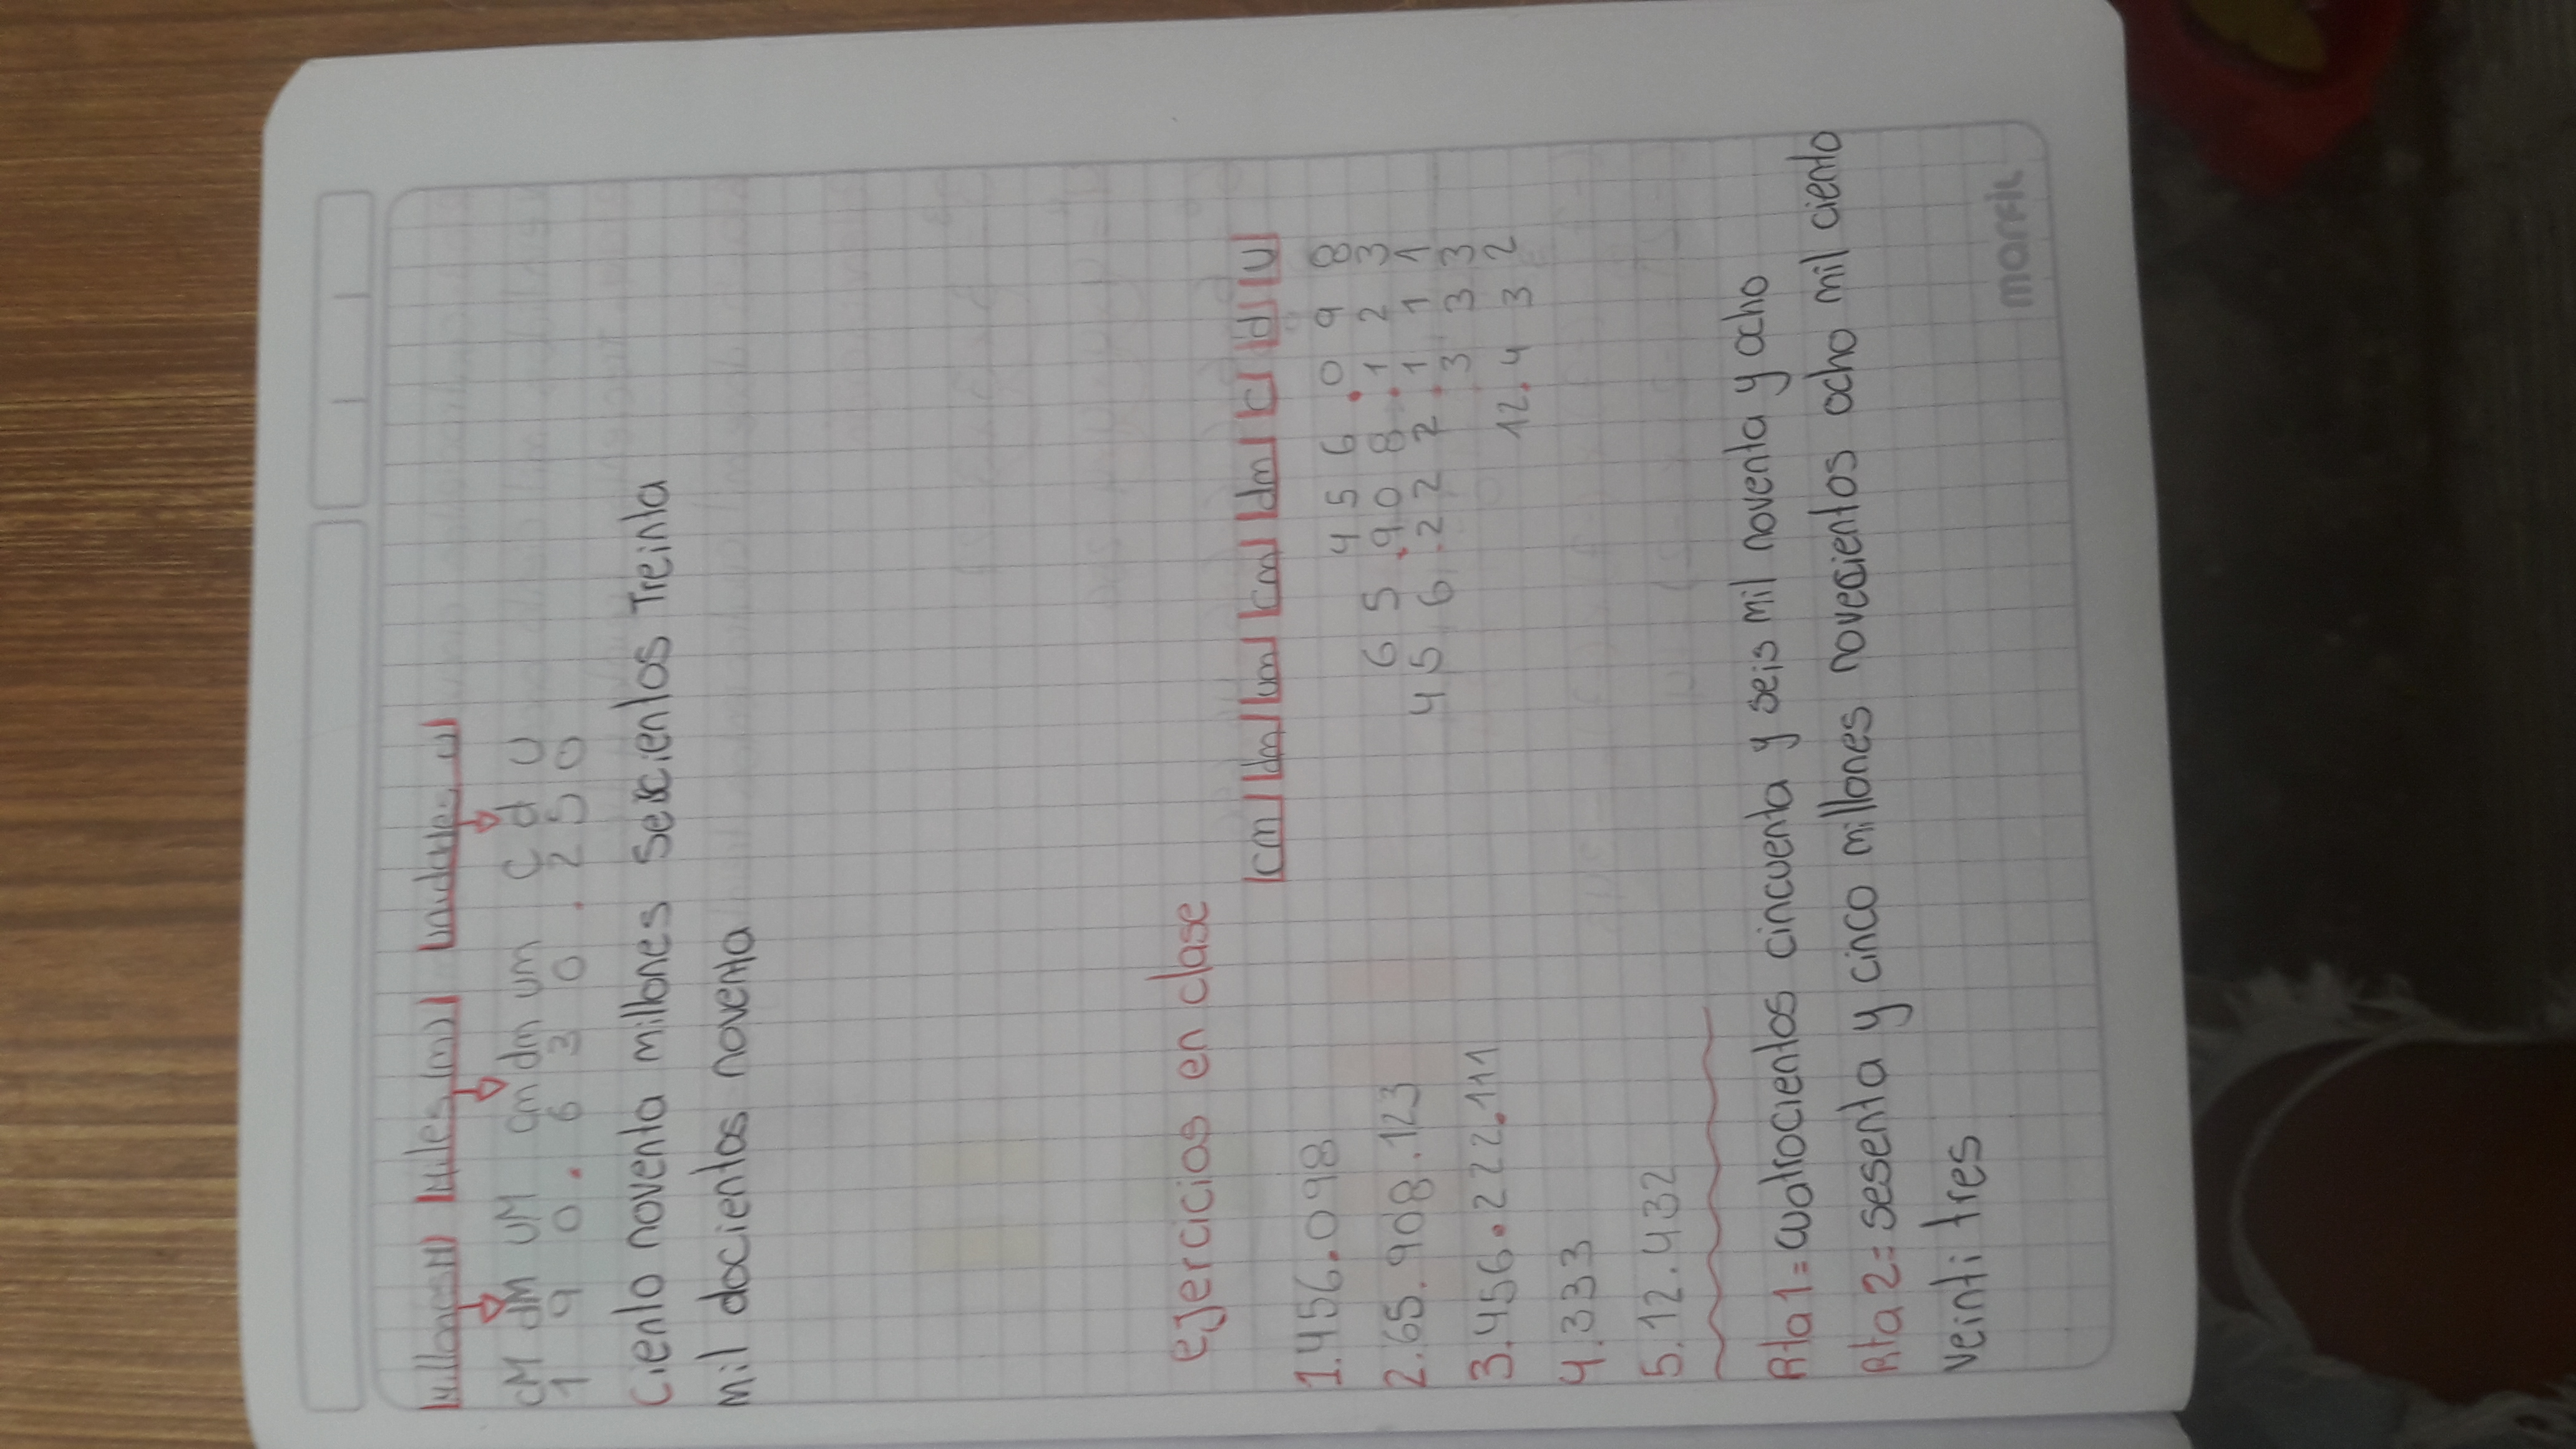 Millones M Miles (m) Unidades U
cM dM UM cm dm um c d U
1 9 0 . 6 3 0 . 2 5 0
Ciento noventa millones Seiscientos Treinta
mil docientos noventa
ejercicios en clase
|cm| |dm| |um| |cm| |dm| |c| |d| |U|
1. 456.098 4 5 6 . 0 9 8
2. 65.908.123 6 5 . 9 0 8 . 1 2 3
3. 456.222.111 4 5 6 . 2 2 2 . 1 1 1
4. 333 3 3 3
5. 12.432 12. 4 3 2
Rta 1 = cuatrocientos cincuenta y seis mil noventa y ocho
Rta 2 = sesenta y cinco millones novecientos ocho mil ciento
veinti tres
MARFIL